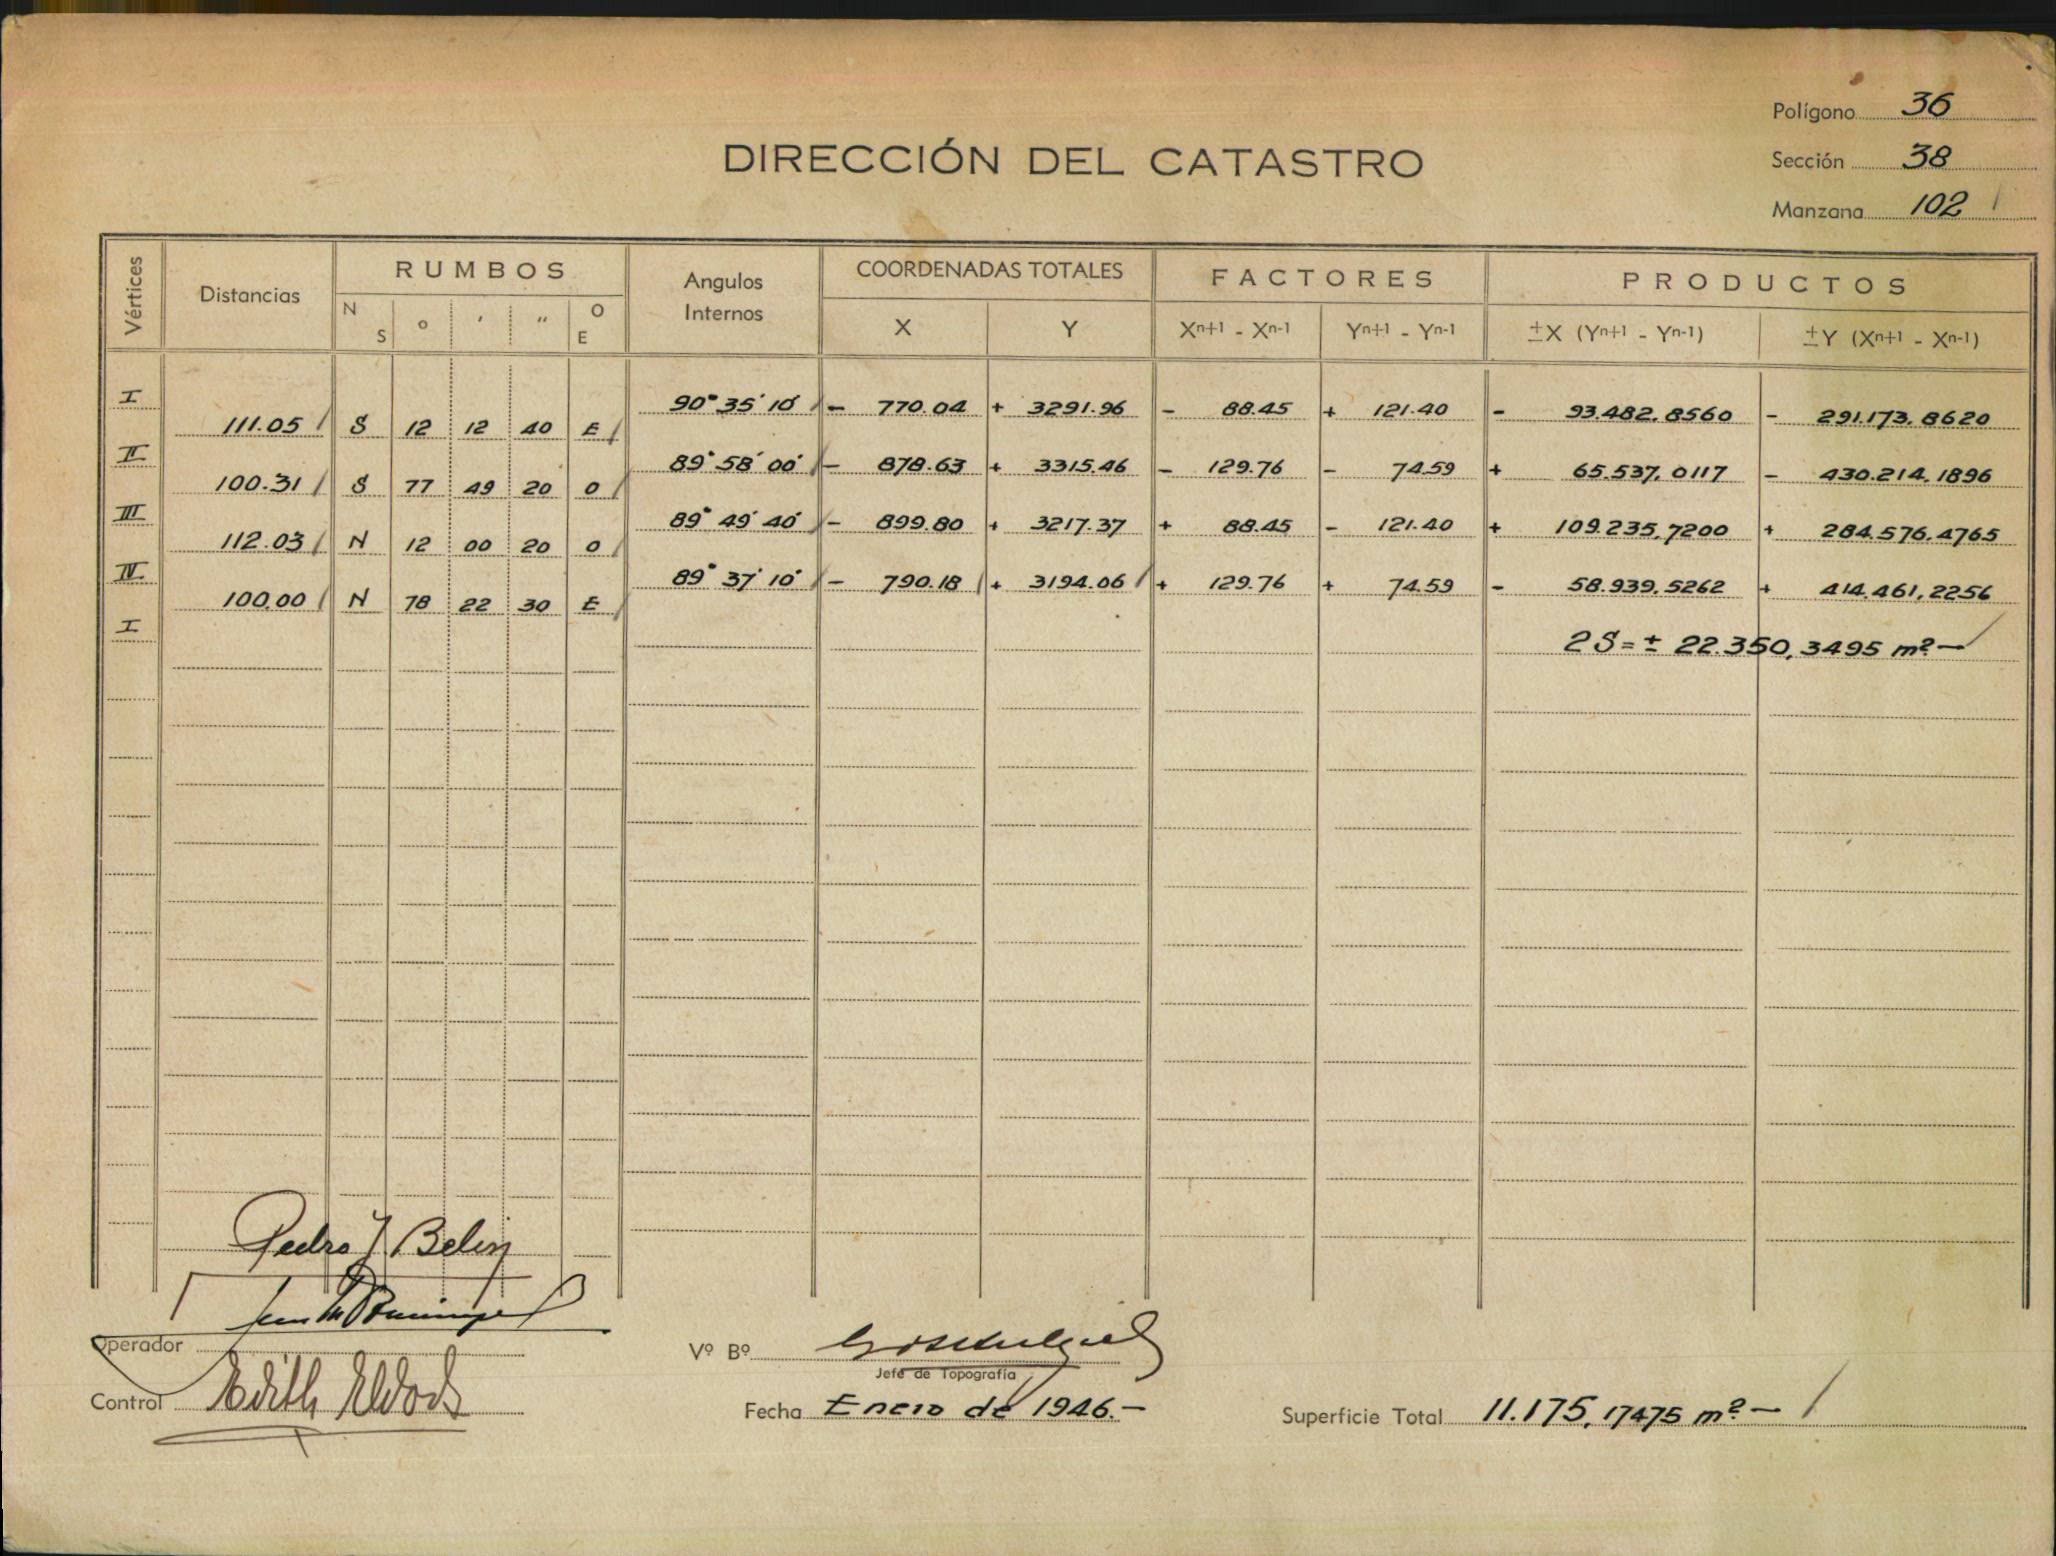 Polígono 36
DIRECCIÓN DEL CATASTRO
Sección 38
Manzana 102
Vértices Distancias RUMBOS Angulos Internos COORDENADAS TOTALES FACTORES PRODUCTOS
N S ° ' " O E X Y Xn+1 - Xn-1 Yn+1 - Yn-1 ±X (Yn+1 - Yn-1) ±Y (Xn+1 - Xn-1)
I 90° 35' 10" - 770.04 + 3291.96 - 88.45 + 121.40 - 93.482,8560 - 291.173,8620
111.05 S 12 12 40 E
II 89° 58' 00" - 878.63 + 3315.46 - 129.76 - 74.59 + 65.537,0117 - 430.214,1896
100.31 S 77 49 20 O
III 89° 49' 40" - 899.80 + 3217.37 + 88.45 - 121.40 + 109.235,7200 + 284.576,4765
112.03 N 12 00 20 O
IV 89° 37' 10" - 790.18 + 3194.06 + 129.76 + 74.59 - 58.939,5262 + 414.461,2256
100,00 N 78 22 30 E
I 2S = ± 22.350,3495 m² -
Pedro J Belin
Operador
Vº Bº
Jefe de Topografía
Control Edith
Fecha Enero de 1946.-
Superficie Total 11.175,17475 m² -